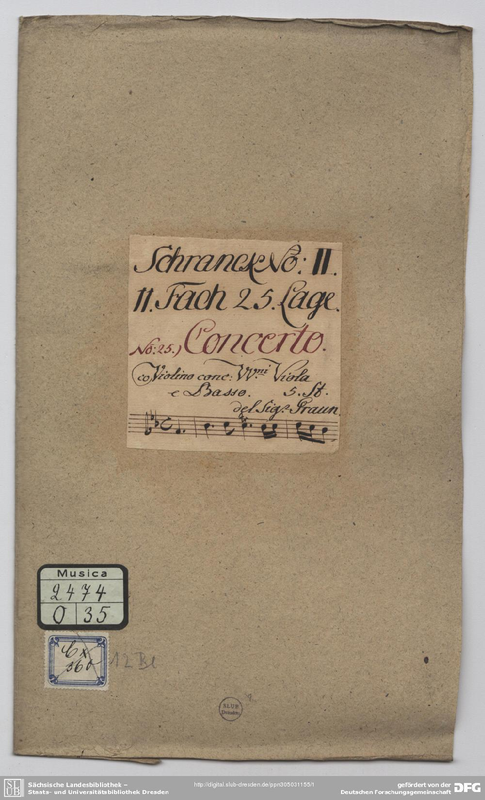 Schranck No: II.
11. Fach 25. Lage.
No: 25.) Concerto.
co Violino conc: VV.ni Viola
e Basso. 5. St.
del Sig.r Graun.
Musica
2474
O 35
Cx
560
12 Bl
SLUB
Dresden
2
SLUB
Sächsische Landesbibliothek –
Staats- und Universitätsbibliothek Dresden
http://digital.slub-dresden.de/ppn305031155/1
gefördert von der
Deutschen Forschungsgemeinschaft
DFG